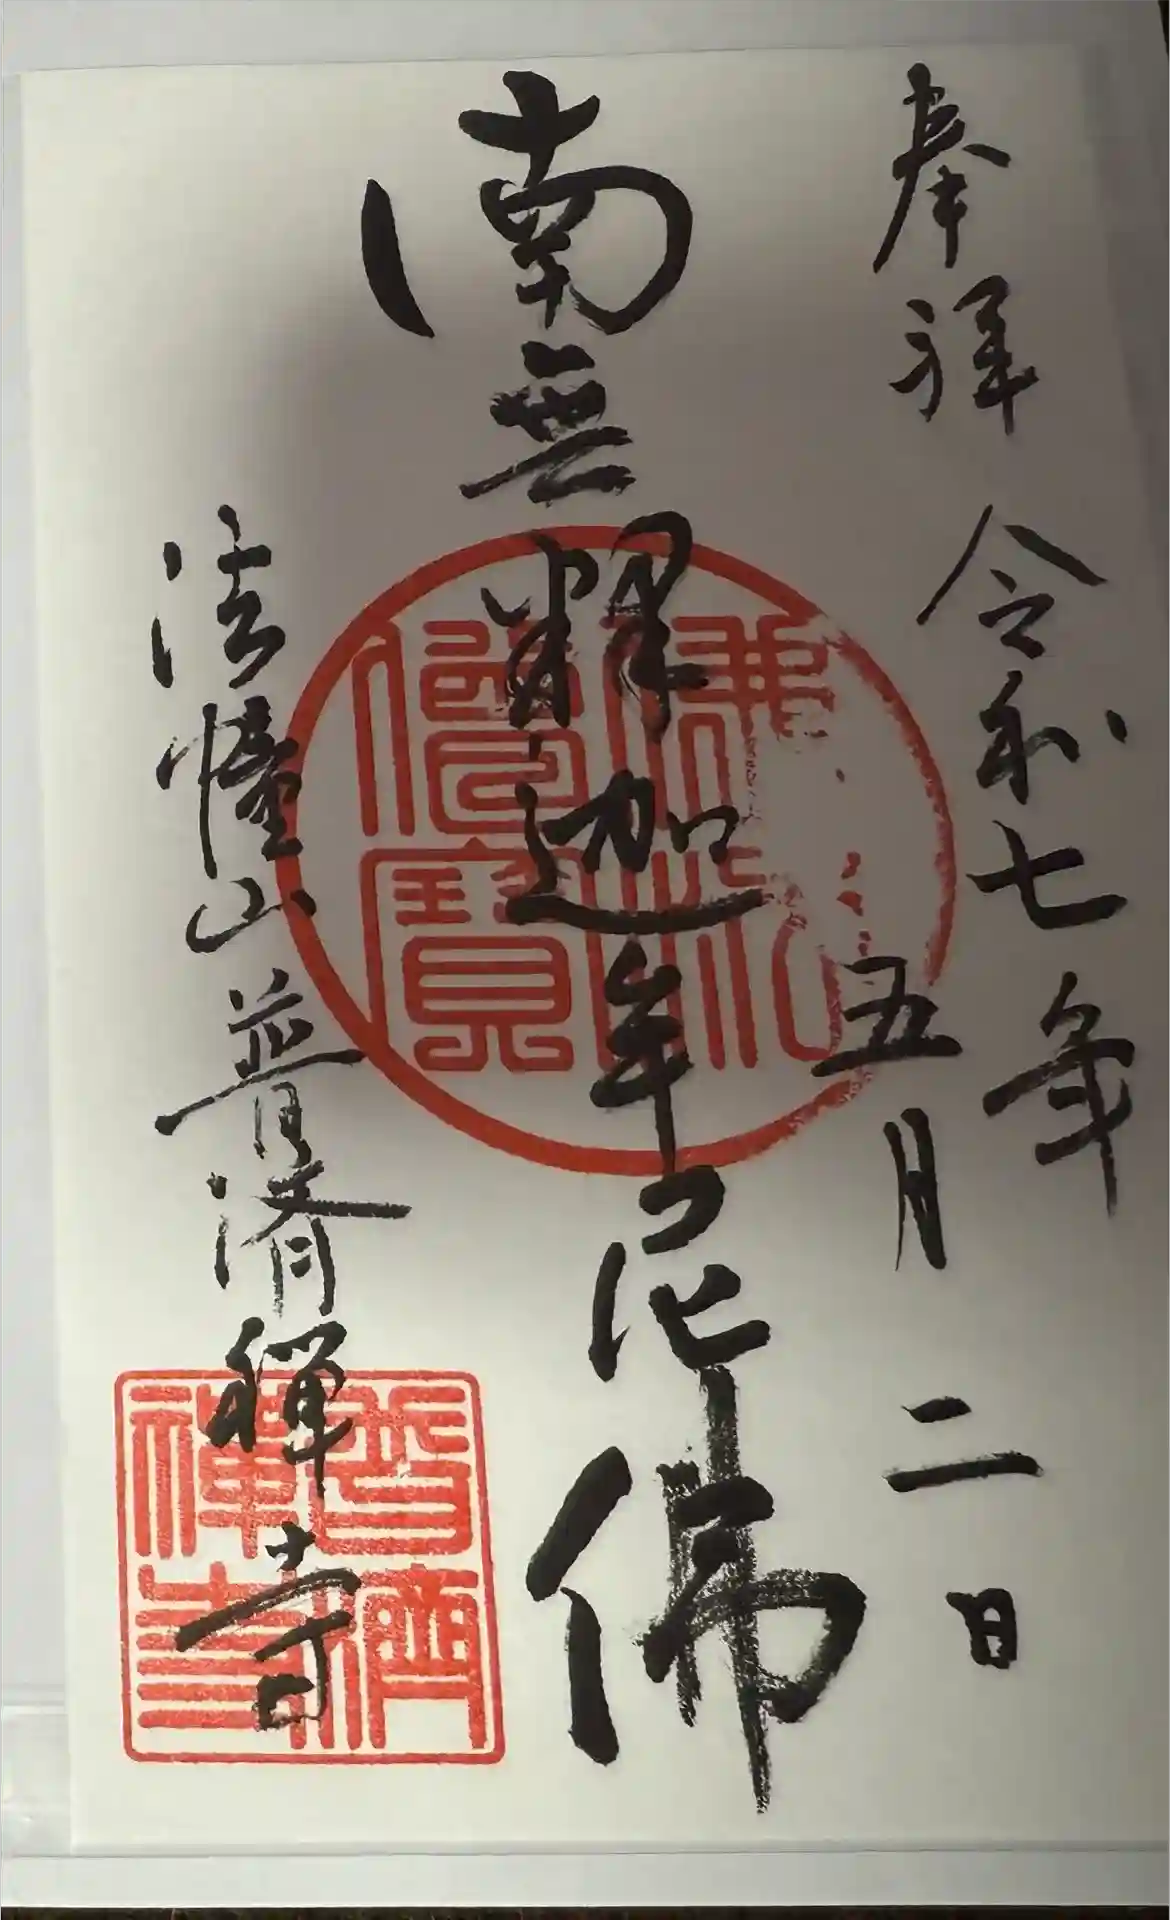 奉拝
令和七年
五月二日
南無釋迦牟尼佛
法幢山普済禅寺
佛法僧寶
普濟禪寺